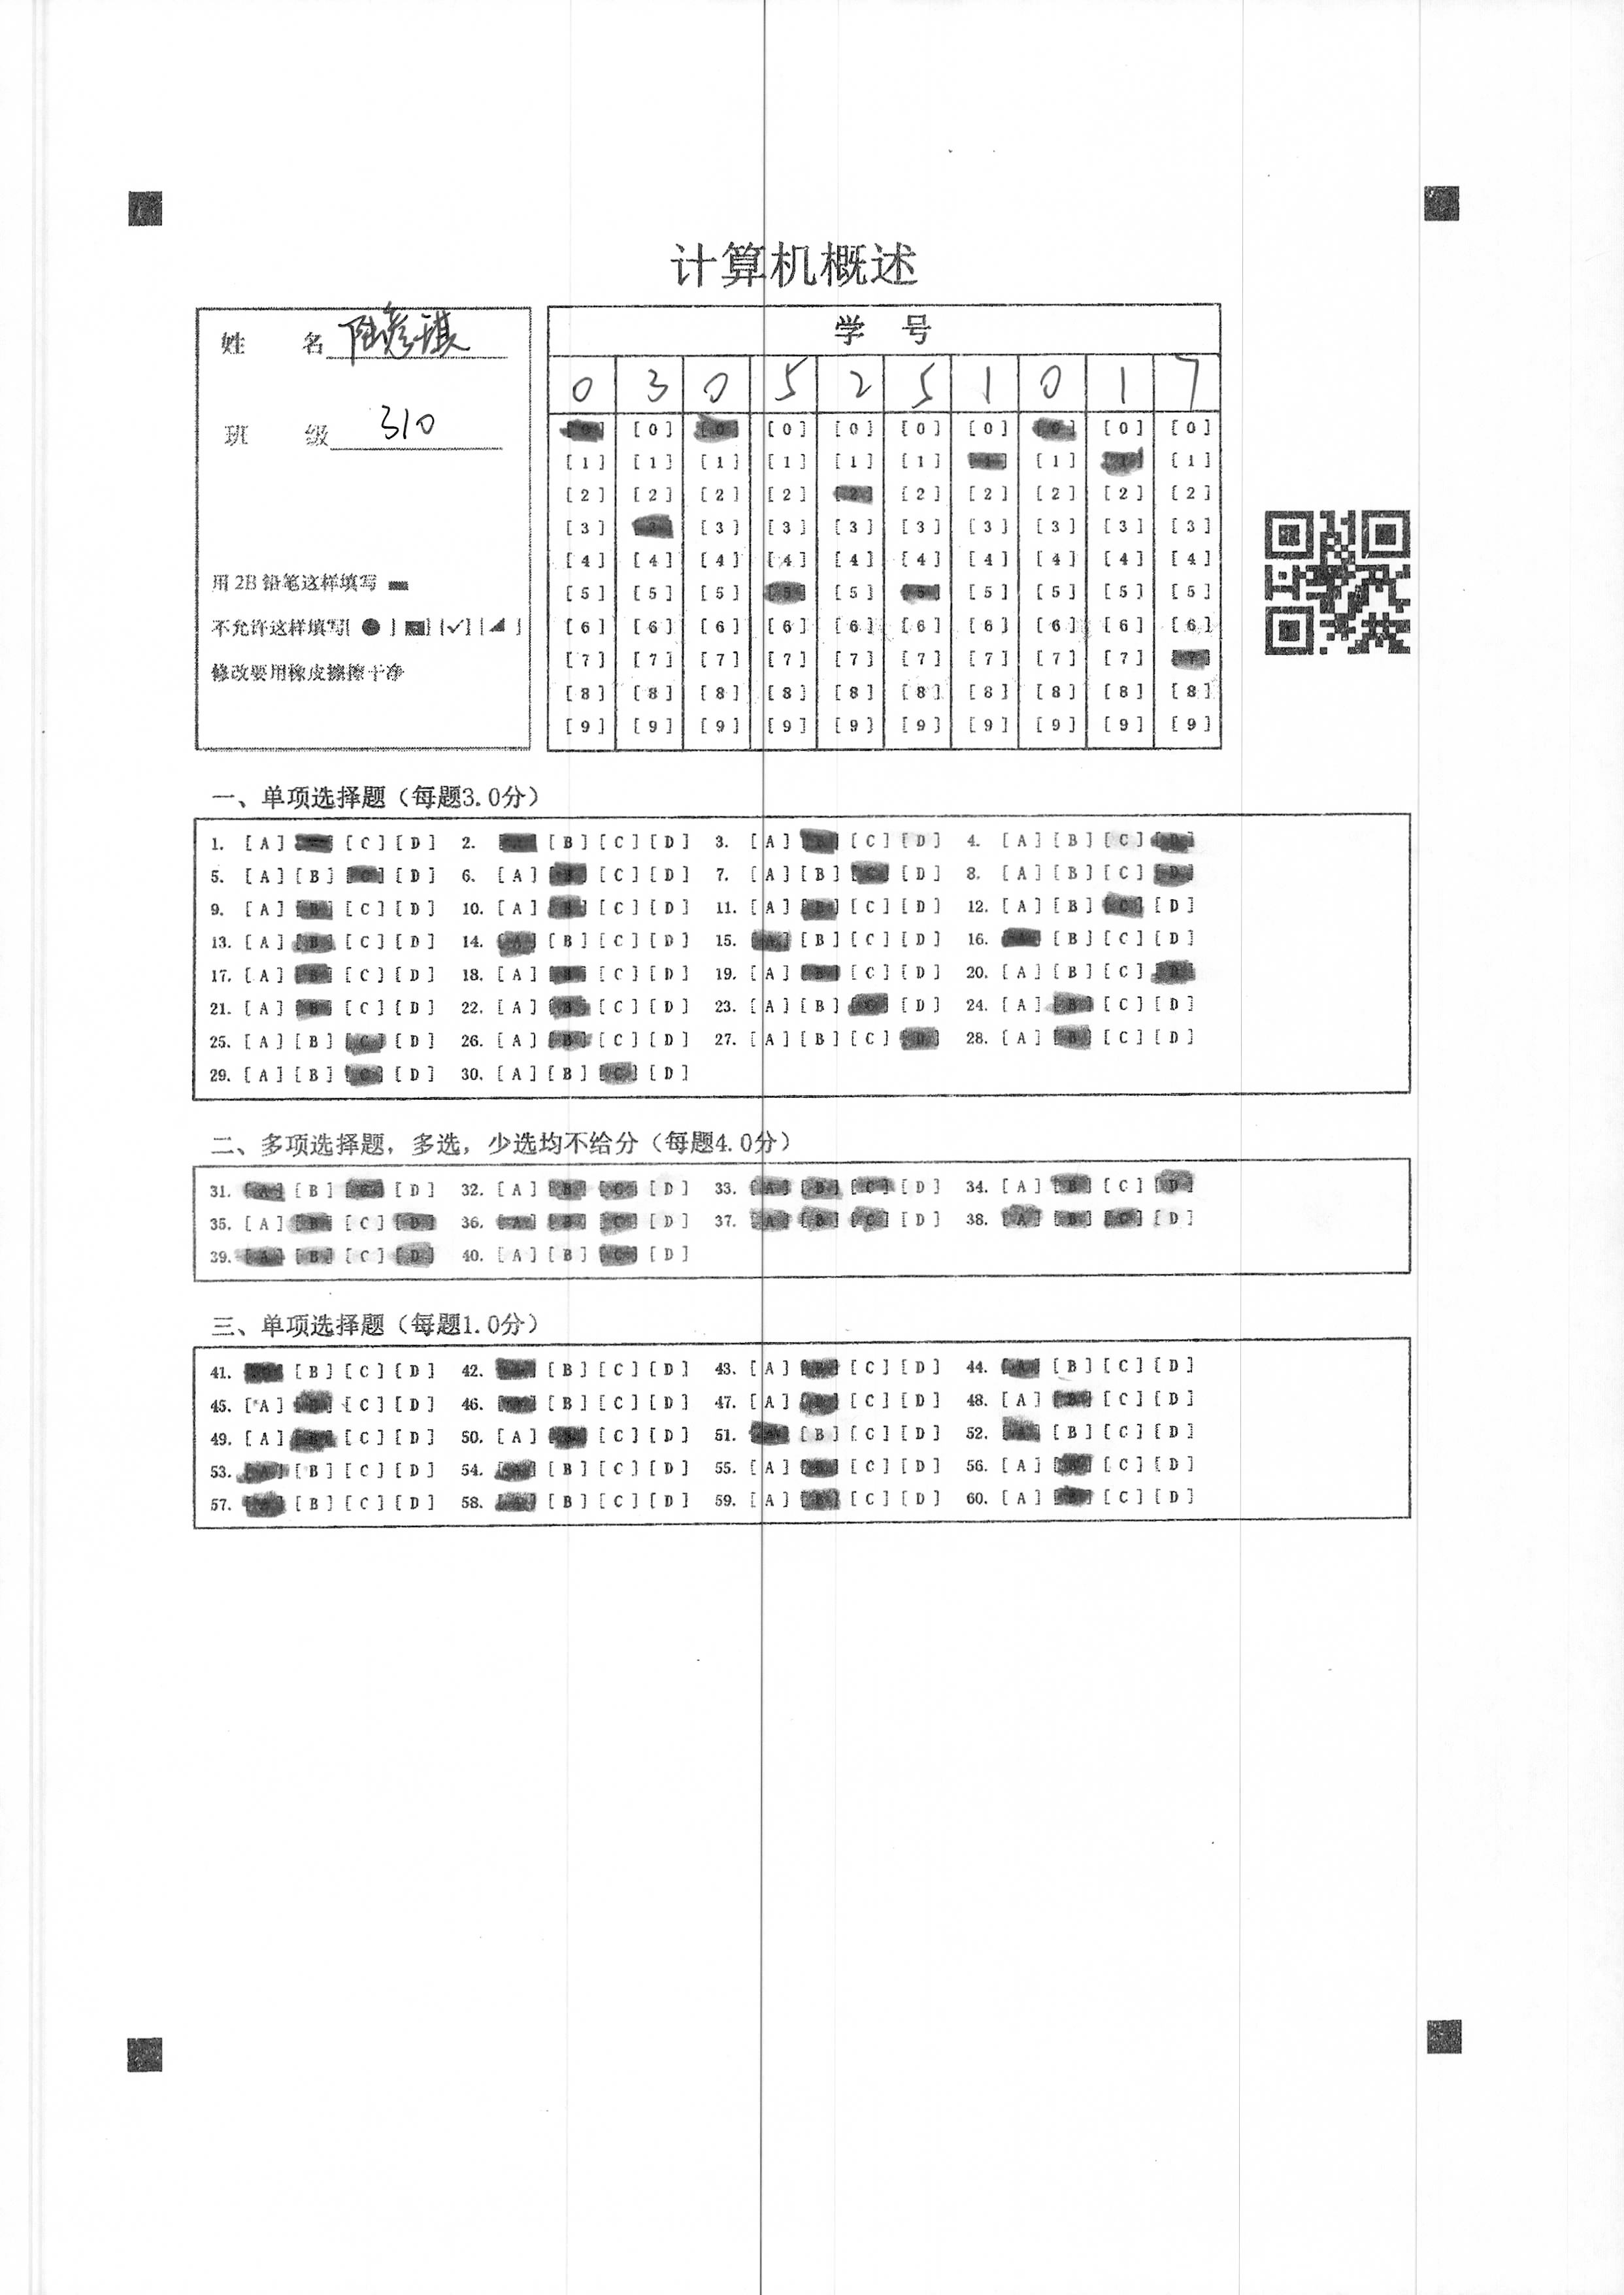 计算机概述
姓 名 陆彦琪
班 级 310
用2B铅笔这样填写
不允许这样填写[ ● ] [ ] [√] [ ]
修改要用橡皮擦擦干净
学 号
0 3 0 5 2 5 1 0 1 7
[0] [0] [0] [0] [0] [0] [0] [0] [0] [0]
[1] [1] [1] [1] [1] [1] [1] [1] [1] [1]
[2] [2] [2] [2] [2] [2] [2] [2] [2] [2]
[3] [3] [3] [3] [3] [3] [3] [3] [3] [3]
[4] [4] [4] [4] [4] [4] [4] [4] [4] [4]
[5] [5] [5] [5] [5] [5] [5] [5] [5] [5]
[6] [6] [6] [6] [6] [6] [6] [6] [6] [6]
[7] [7] [7] [7] [7] [7] [7] [7] [7] [7]
[8] [8] [8] [8] [8] [8] [8] [8] [8] [8]
[9] [9] [9] [9] [9] [9] [9] [9] [9] [9]
一、单项选择题（每题3.0分）
1. [A] [C] [D] 2. [B] [C] [D] 3. [A] [B] [C] [D] 4. [A] [B] [C] [D]
5. [A] [B] [C] [D] 6. [A] [B] [C] [D] 7. [A] [B] [C] [D] 8. [A] [B] [C] [D]
9. [A] [B] [C] [D] 10. [A] [B] [C] [D] 11. [A] [B] [C] [D] 12. [A] [B] [C] [D]
13. [A] [B] [C] [D] 14. [A] [B] [C] [D] 15. [A] [B] [C] [D] 16. [A] [B] [C] [D]
17. [A] [B] [C] [D] 18. [A] [B] [C] [D] 19. [A] [B] [C] [D] 20. [A] [B] [C] [D]
21. [A] [B] [C] [D] 22. [A] [B] [C] [D] 23. [A] [B] [C] [D] 24. [A] [B] [C] [D]
25. [A] [B] [C] [D] 26. [A] [B] [C] [D] 27. [A] [B] [C] [D] 28. [A] [B] [C] [D]
29. [A] [B] [C] [D] 30. [A] [B] [C] [D]
二、多项选择题，多选，少选均不给分（每题4.0分）
31. [A] [B] [C] [D] 32. [A] [B] [C] [D] 33. [A] [B] [C] [D] 34. [A] [B] [C] [D]
35. [A] [B] [C] [D] 36. [A] [B] [C] [D] 37. [A] [B] [C] [D] 38. [A] [B] [C] [D]
39. [A] [B] [C] [D] 40. [A] [B] [C] [D]
三、单项选择题（每题1.0分）
41. [A] [B] [C] [D] 42. [A] [B] [C] [D] 43. [A] [B] [C] [D] 44. [A] [B] [C] [D]
45. [A] [B] [C] [D] 46. [A] [B] [C] [D] 47. [A] [B] [C] [D] 48. [A] [B] [C] [D]
49. [A] [B] [C] [D] 50. [A] [B] [C] [D] 51. [A] [B] [C] [D] 52. [A] [B] [C] [D]
53. [A] [B] [C] [D] 54. [A] [B] [C] [D] 55. [A] [B] [C] [D] 56. [A] [B] [C] [D]
57. [A] [B] [C] [D] 58. [A] [B] [C] [D] 59. [A] [B] [C] [D] 60. [A] [B] [C] [D]